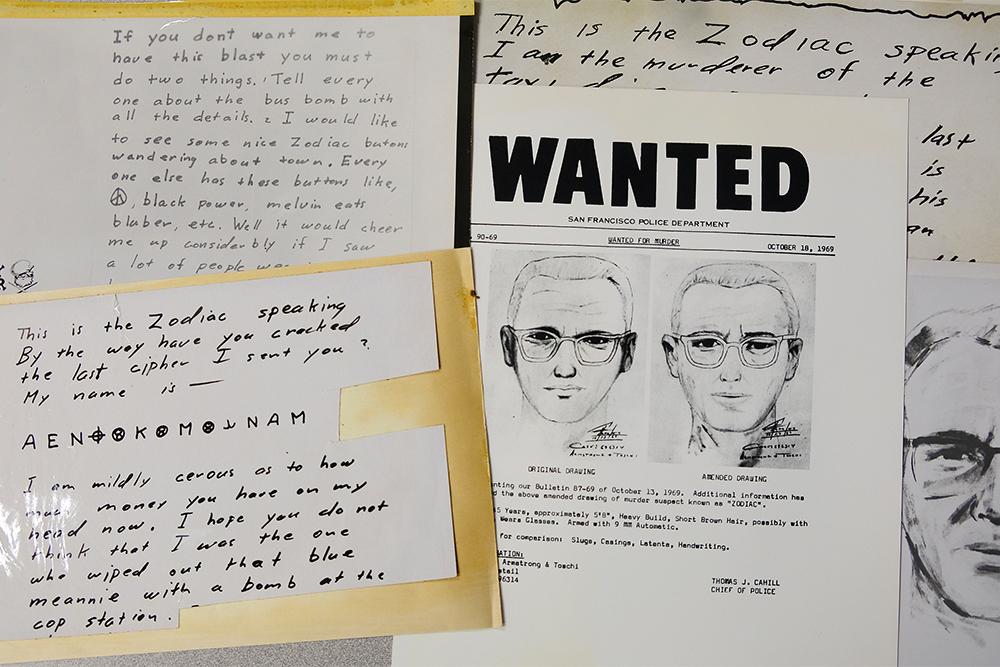 If you dont want me to
have this blast you must
do two things. 1 Tell every
one about the bus bomb with
all the details. 2 I would like
to see some nice Zodiac butons
wandering about town. Every
one else has these buttons like,
black power, melvin eats
bluber, etc. Well it would cheer
me up considerbly if I saw
a lot of people
This is the Zodiac speaking
By the way have you cracked
the last cipher I sent you?
My name is —
A E N ⌖ ⊗ K ⊗ M ⊗ ⅃ N A M
I am mildly cerous as to how
much money you have on my
head now. I hope you do not
think that I was the one
who wiped out that blue
meannie with a bomb at the
cop station.
This is the Zodiac speaking
I am the murderer of the
last
is
his
WANTED
SAN FRANCISCO POLICE DEPARTMENT
90-69 WANTED FOR MURDER OCTOBER 18, 1969
ORIGINAL DRAWING AMENDED DRAWING
our Bulletin 87-69 of October 13, 1969. Additional information has
the above amended drawing of murder suspect known as "ZODIAC".
5 Years, approximately 5'8", Heavy Build, Short Brown Hair, possibly with
Wears Glasses. Armed with 9 MM Automatic.
for comparison: Slugs, Casings, Latents, Handwriting.
Armstrong & Toschi
96314
THOMAS J. CAHILL
CHIEF OF POLICE